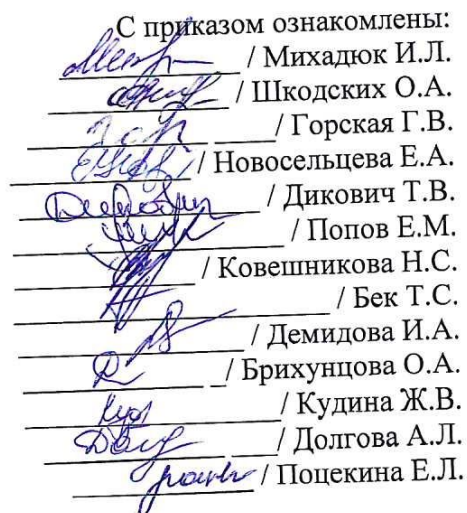 С приказом ознакомлены:
/ Михадюк И.Л.
/ Шкодских О.А.
/ Горская Г.В.
/ Новосельцева Е.А.
/ Дикович Т.В.
/ Попов Е.М.
/ Ковешникова Н.С.
/ Бек Т.С.
/ Демидова И.А.
/ Брихунцова О.А.
/ Кудина Ж.В.
/ Долгова А.Л.
/ Поцекина Е.Л.